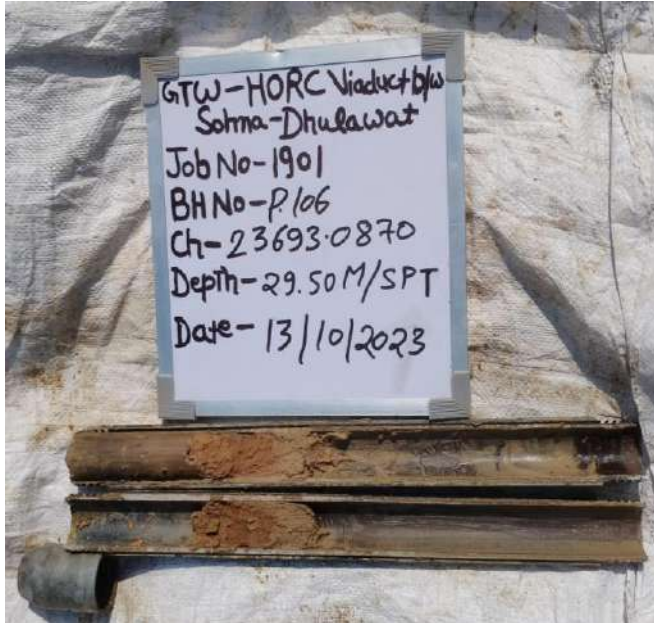 GTW-HORC Viaduct b/w
Sohna-Dhulawat
Job No-1901
BH No-P.106
Ch-23693.0870
Depth-29.50M/SPT
Date-13/10/2023